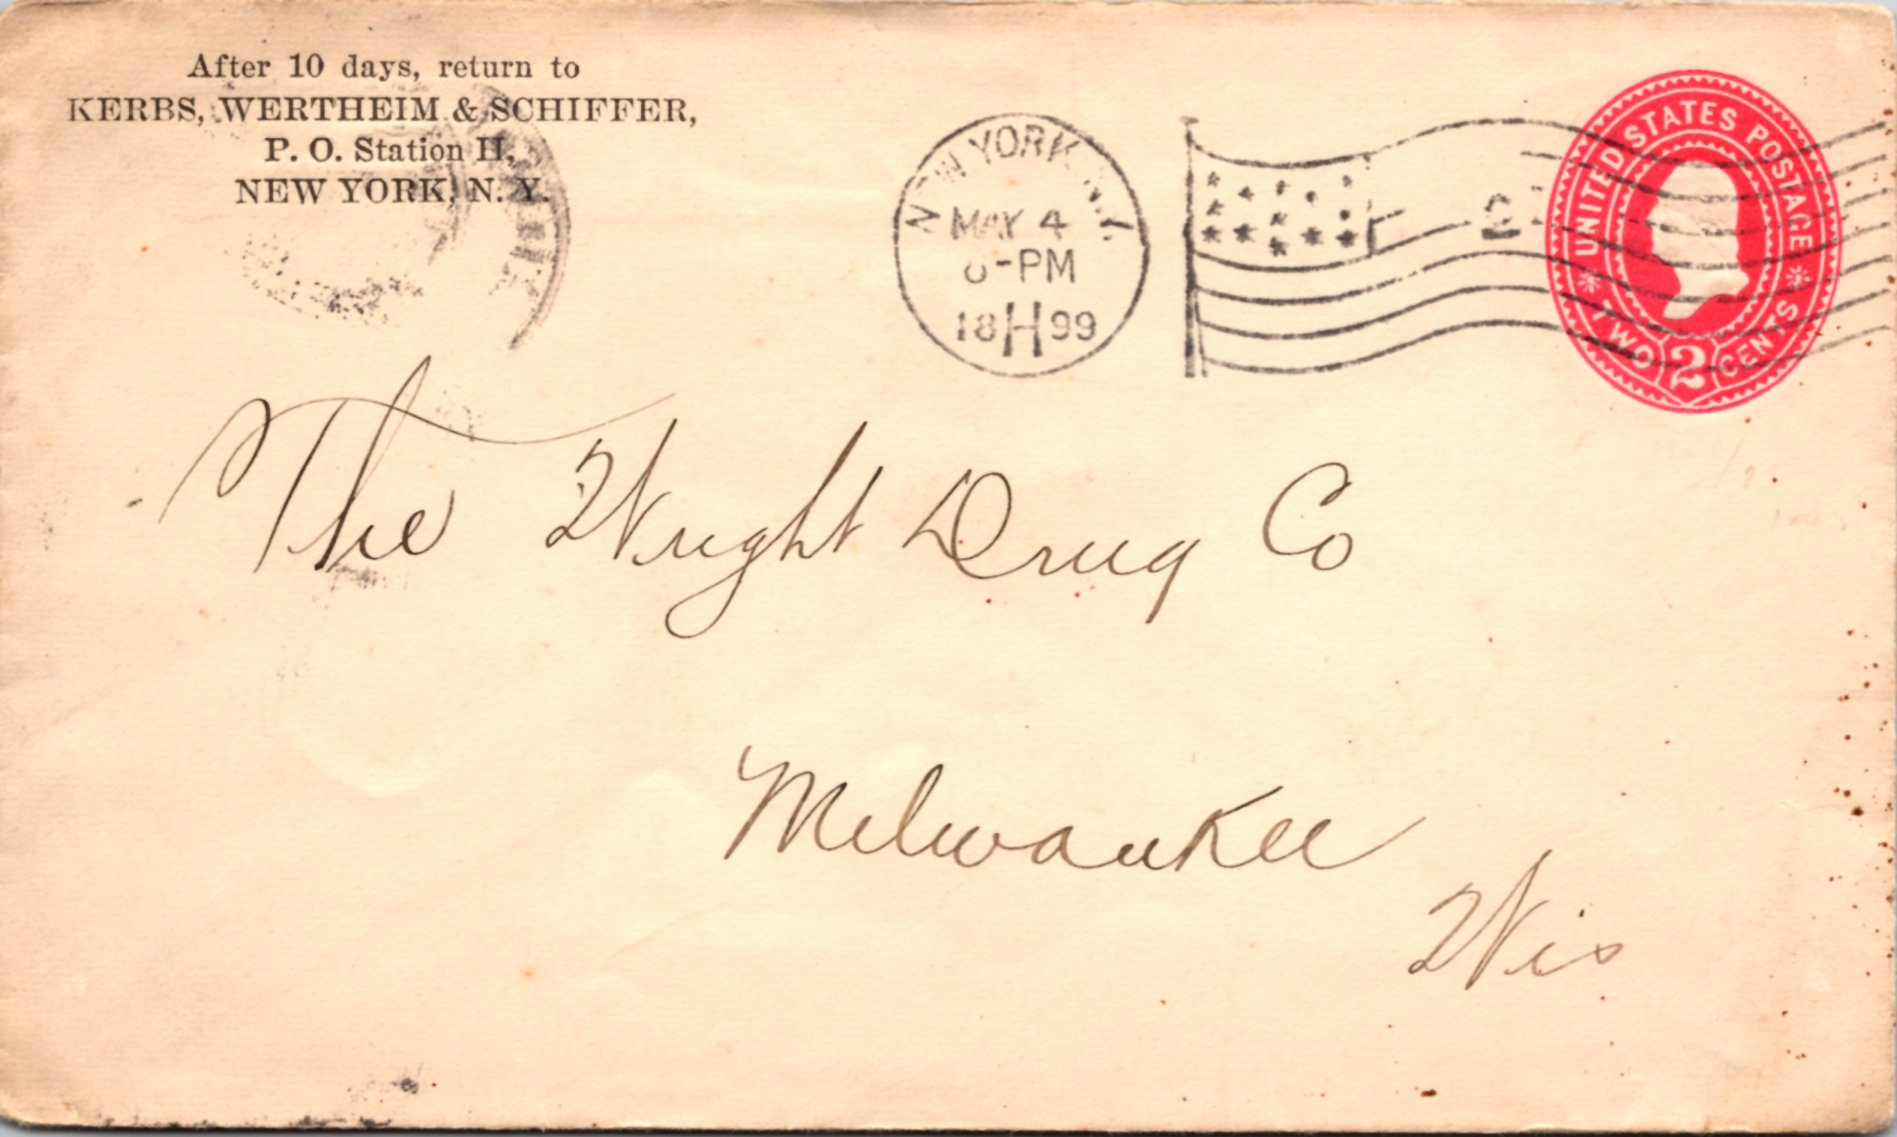 After 10 days, return to
KERBS, WERTHEIM & SCHIFFER,
P. O. Station H,
NEW YORK, N. Y.
NEW YORK, N.Y.
MAY 4
-PM
18 H 99
UNITED STATES POSTAGE
TWO 2 CENTS
The Wright Drug Co
Milwaukee
Wis